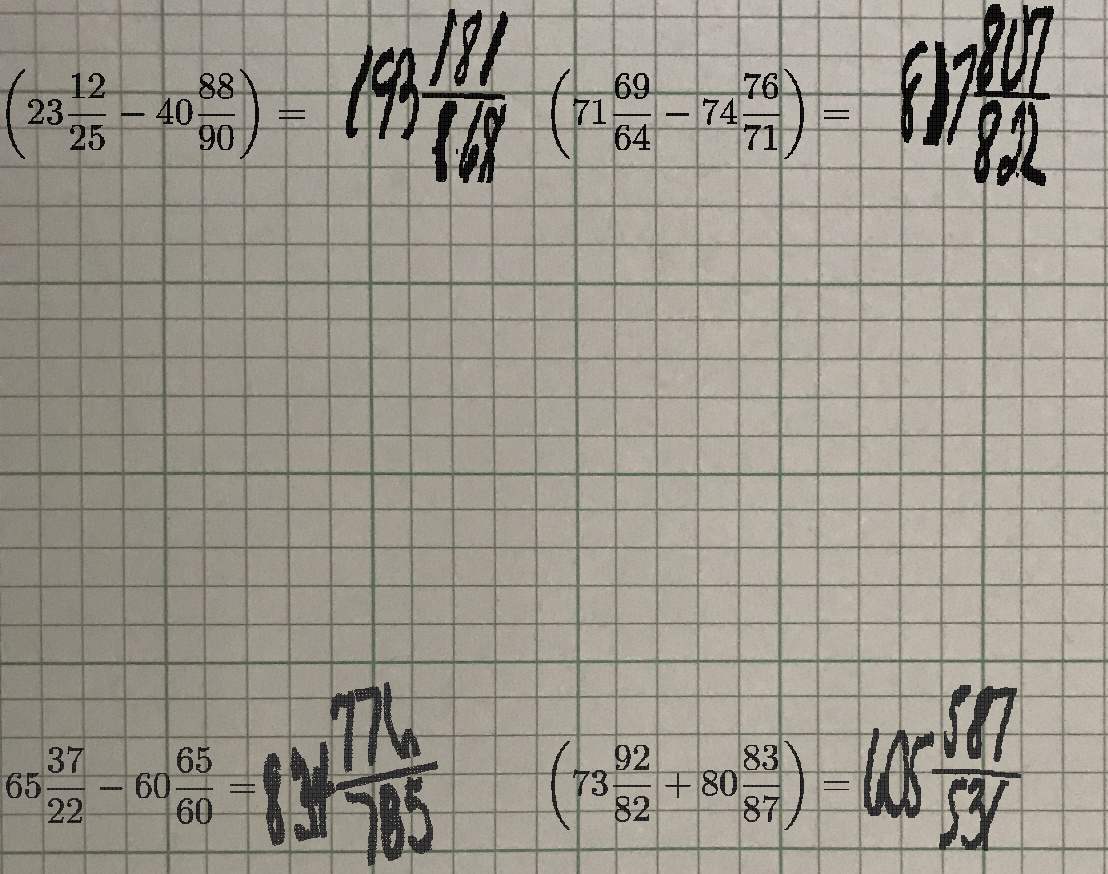 (23 12/25 − 40 88/90) = 193 181/868 (71 69/64 − 74 76/71) = 817 807/822
65 37/22 − 60 65/60 = 831 776/785 (73 92/82 + 80 83/87) = 605 587/531